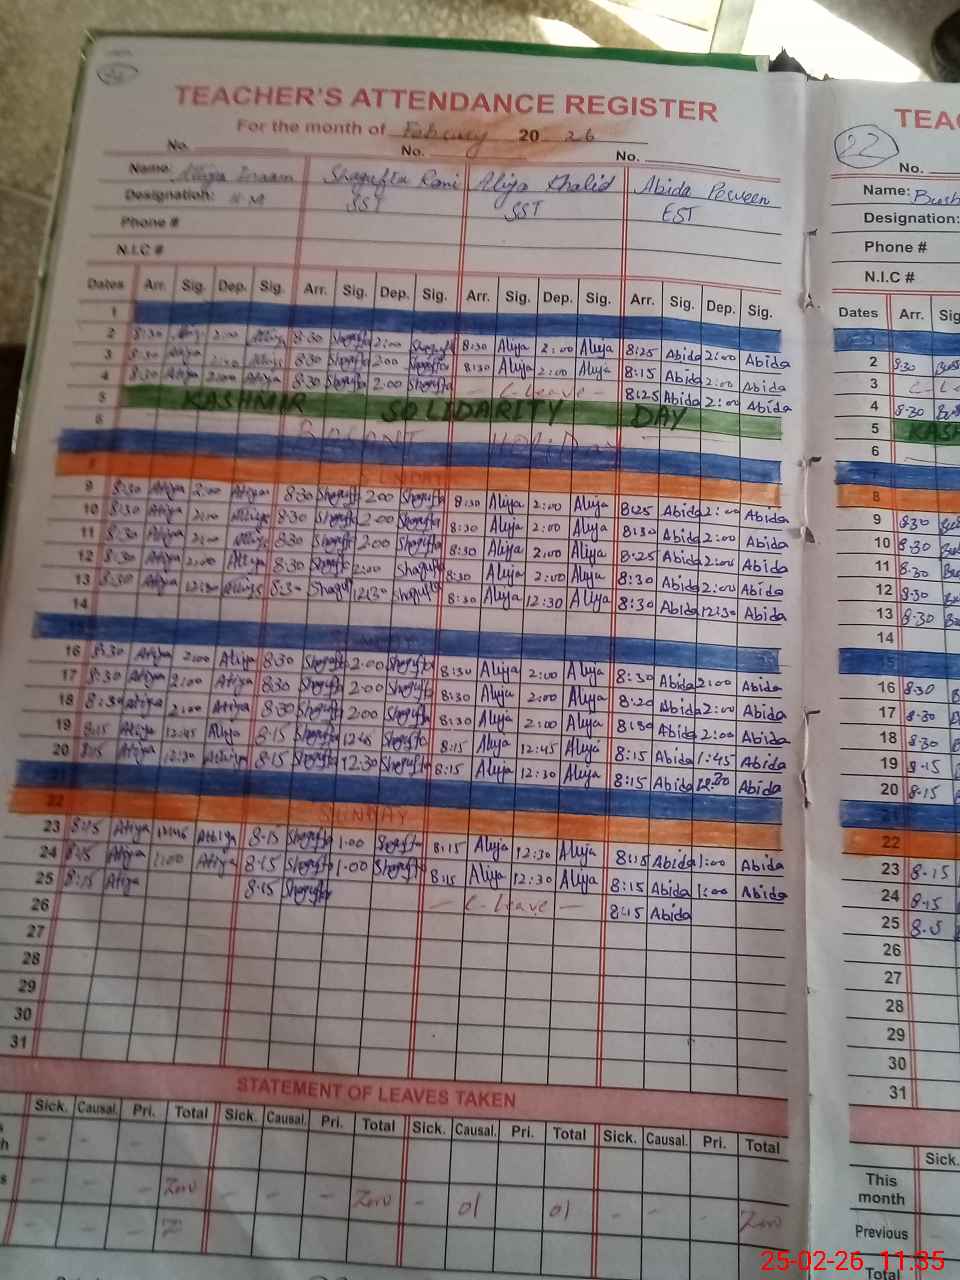 TEACHER'S ATTENDANCE REGISTER
For the month of February 20 26
No. No. No.
Name: Shagufta Rani Aliya Khalid Abida Perveen
Designation: H.M SST SST EST
Phone #
N.I.C #
Dates Arr. Sig. Dep. Sig. Arr. Sig. Dep. Sig. Arr. Sig. Dep. Sig. Arr. Sig. Dep. Sig.
1
2 8:30 2:00 8:30 Shagufta 2:00 Shagufta 8:30 Aliya 2:00 Aliya 8:25 Abida 2:00 Abida
3 8:30 Atiya 2:00 8:30 Shagufta 2:00 Shagufta 8:30 Aliya 2:00 Aliya 8:15 Abida 2:00 Abida
4 8:30 Atiya 2:00 Atiya 8:30 Shagufta 2:00 Shagufta - C-Leave - 8:25 Abida 2:00 Abida
5 KASHMIR SOLIDARITY DAY
6 BASANT HOLIDAY
8 SUNDAY
9 8:30 Atiya 2:00 Atiya 8:30 Shagufta 2:00 Shagufta 8:30 Aliya 2:00 Aliya 8:25 Abida 2:00 Abida
10 8:30 Atiya 2:00 Atiya 8:30 Shagufta 2:00 Shagufta 8:30 Aliya 2:00 Aliya 8:30 Abida 2:00 Abida
11 8:30 Atiya 2:00 Atiya 8:30 Shagufta 2:00 Shagufta 8:30 Aliya 2:00 Aliya 8:25 Abida 2:00 Abida
12 8:30 Atiya 2:00 Atiya 8:30 Shagufta 2:00 Shagufta 8:30 Aliya 2:00 Aliya 8:30 Abida 2:00 Abida
13 8:30 Atiya 12:30 Atiya 8:30 Shagufta 12:30 Shagufta 8:30 Aliya 12:30 Aliya 8:30 Abida 12:30 Abida
14
15
16 8:30 Atiya 2:00 Atiya 8:30 Shagufta 2:00 Shagufta 8:30 Aliya 2:00 Aliya 8:30 Abida 2:00 Abida
17 8:30 Atiya 2:00 Atiya 8:30 Shagufta 2:00 Shagufta 8:30 Aliya 2:00 Aliya 8:20 Abida 2:00 Abida
18 8:30 Atiya 2:00 Atiya 8:30 Shagufta 2:00 Shagufta 8:30 Aliya 2:00 Aliya 8:30 Abida 2:00 Abida
19 8:15 Atiya 12:45 Atiya 8:15 Shagufta 12:45 Shagufta 8:15 Aliya 12:45 Aliya 8:15 Abida 1:45 Abida
20 8:15 Atiya 12:30 8:15 Shagufta 12:30 Shagufta 8:15 Aliya 12:30 Aliya 8:15 Abida 12:30 Abida
21
22 SUNDAY
23 8:15 Atiya Attiya 8:15 Shagufta 1:00 Shagufta 8:15 Aliya 12:30 Aliya 8:15 Abida 1:00 Abida
24 8:15 Atiya 1:00 Atiya 8:15 Shagufta 1:00 Shagufta 8:15 Aliya 12:30 Aliya 8:15 Abida 1:00 Abida
25 8:15 Atiya 8:15 Shagufta - C-Leave - 8:15 Abida
26
27
28
29
30
31
STATEMENT OF LEAVES TAKEN
Sick. Causal. Pri. Total Sick. Causal. Pri. Total Sick. Causal. Pri. Total Sick. Causal. Pri. Total
Zero Zero 01 01 Zero
22
TEAC
No.
Name: Bush
Designation:
Phone #
N.I.C #
Dates Arr. Sig
2 8:30
3 C-L
4 8-30
5 KASH
6
7
8
9 8:30
10 8-30
11 8-30
12 8-30
13 8-30
14
15
16 8-30
17 8-30
18 8-30
19 8-15
20 8-15
21
22
23 8-15
24 8-15
25 8-15
26
27
28
29
30
31
Sick.
This month
Previous
Total
25-02-26 11:35